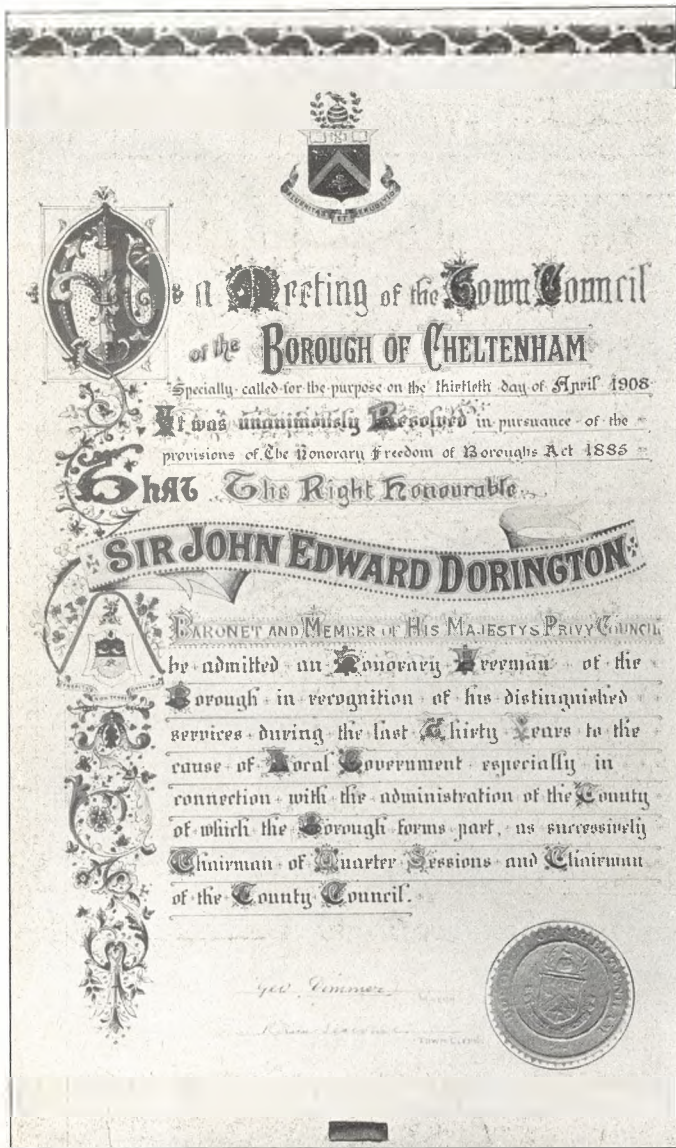 SALUBRITAS ET ERUDITIO
At a Meeting of the Town Council
of the BOROUGH OF CHELTENHAM
Specially called for the purpose on the thirtieth day of April 1908
It was unanimously Resolved in pursuance of the
provisions of The Honorary Freedom of Boroughs Act 1885
That The Right Honourable
SIR JOHN EDWARD DORINGTON
BARONET AND MEMBER OF HIS MAJESTYS PRIVY COUNCIL
be admitted an Honorary Freeman of the
Borough in recognition of his distinguished
services during the last Thirty Years to the
cause of Local Government especially in
connection with the administration of the County
of which the Borough forms part, as successively
Chairman of Quarter Sessions and Chairman
of the County Council.
Geo Dimmer
MAYOR
TOWN CLERK